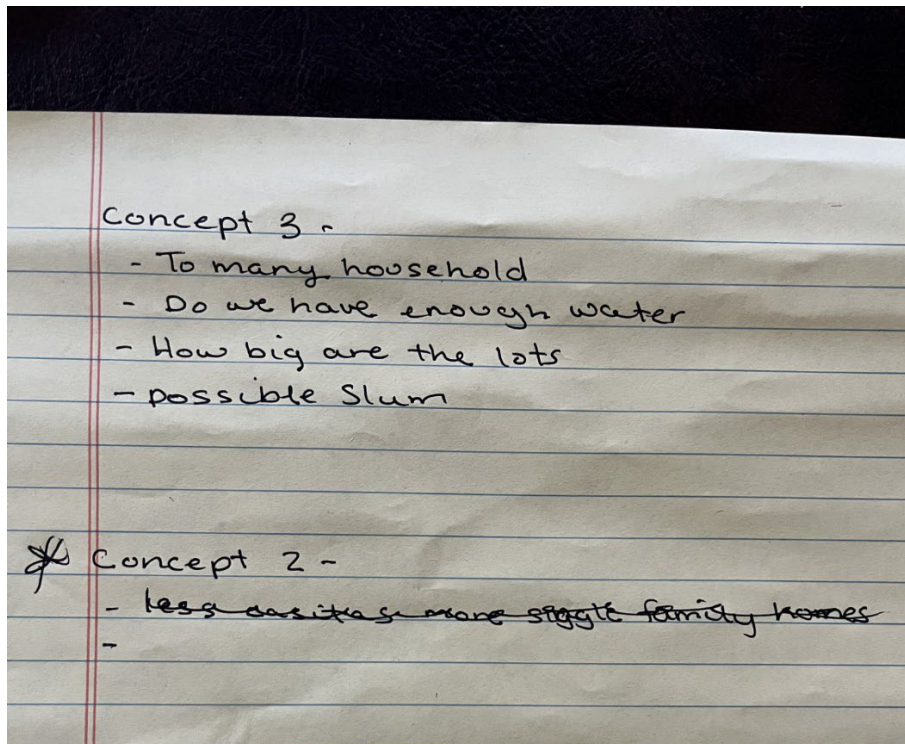 Concept 3 -
- To many household
- Do we have enough water
- How big are the lots
- possible Slum
* Concept 2 -
- less casitas more siggle family homes
-